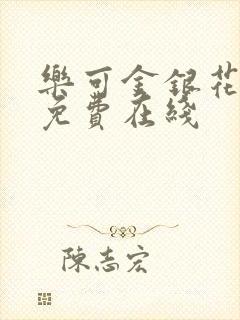 樂可金銀花
免費在綫
陳志宏